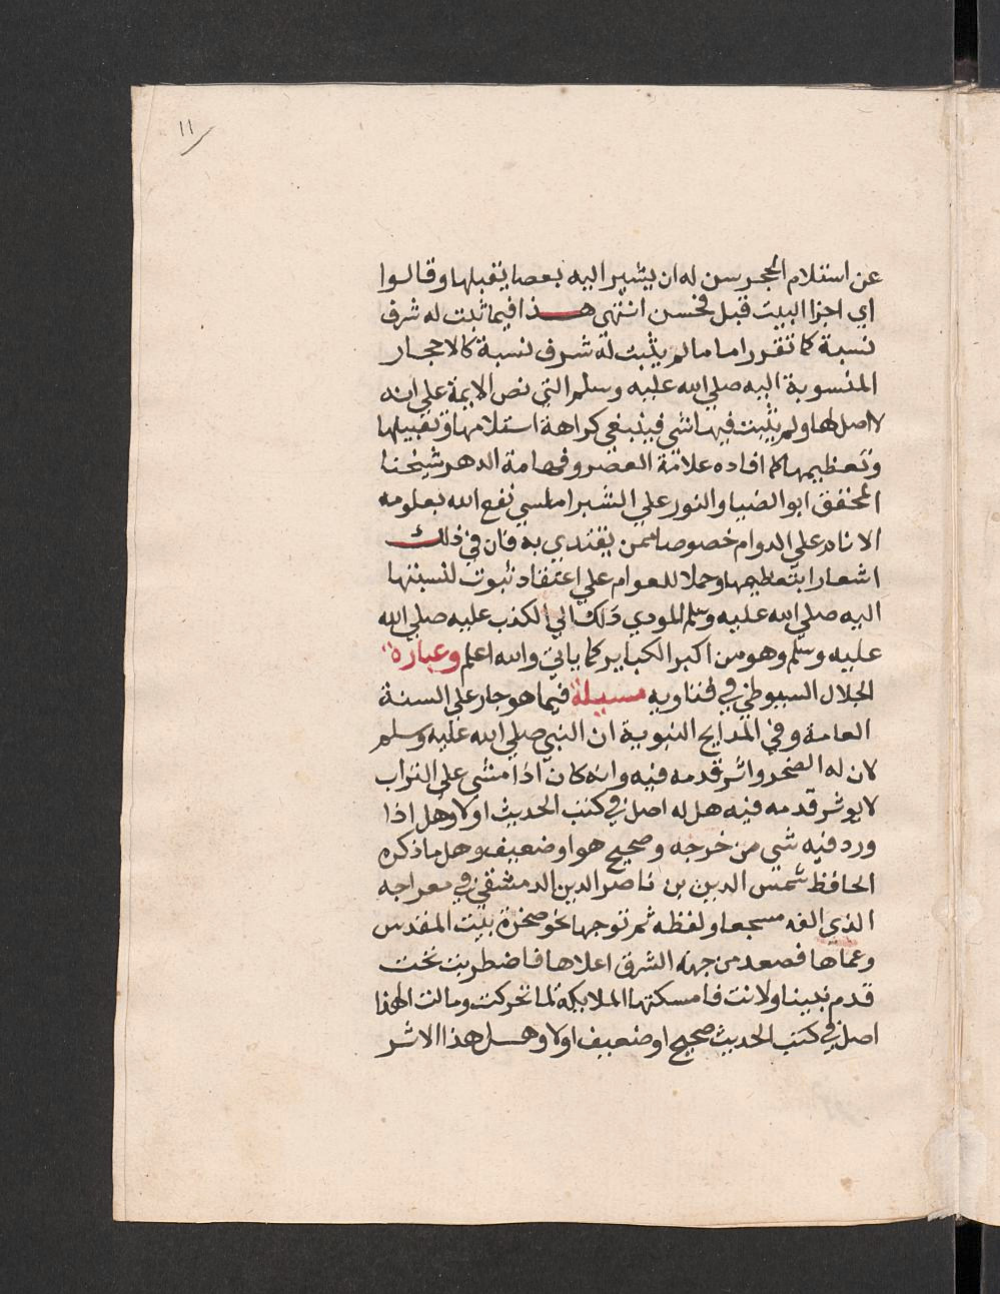 ١١
عن استلام الحجر سن له ان يشير اليه بعصا يقبلها وقالوا
اي اجزا البيت قبل فحسن انتهى هذا فيما ثبت له شرف
نسبة كما تقرر اما ما لم يثبت له شرف نسبة كالاحجار
المنسوبة اليه صلي الله عليه وسلم التي نص الايمة علي انه
لا اصل لها ولم يثبت فيها شي فينبغي كراهة استلامها وتقبيلها
وتعظيمها كما افاده علامة العصر وفهامة الدهر شيخنا
المحقق ابو الضيا والنور علي الشبراملسي نفع الله بعلومه
الانام علي الدوام خصوصا ممن يقتدي به فان في ذلك
اشعارا بتعظيمها وحملا للعوام علي اعتقاد ثبوت لنسبتها
اليه صلي الله عليه وسلم المودي ذلك الي الكذب عليه صلي الله
عليه وسلم وهو من اكبر الكباير كما ياتي والله اعلم وعبارة
الجلال السيوطي في فتاويه مسيلة فيما هو جار علي السنة
العامة وفي المدايح النبوية ان النبي صلي الله عليه وسلم
لان له الصخر واثر قدمه فيه وانه كان اذا مشي علي التراب
لا يوثر قدمه فيه هل له اصل في كتب الحديث اولا وهل اذا
ورد فيه شي من خرجه وصحيح هو او ضعيف وهل ما ذكره
الحافظ شمس الدين بن ناصر الدين الدمشقي في معراجه
الذي الفه مسجعا ولفظه ثم توجها نحو صخرة بيت المقدس
وعماها فصعد من جهة الشرق اعلاها فاضطربت تحت
قدم نبينا ولانت فامسكتها الملايكة لما تحركت ومالت الهذا
اصل في كتب الحديث صحيح او ضعيف اولا وهل هذا الاثر